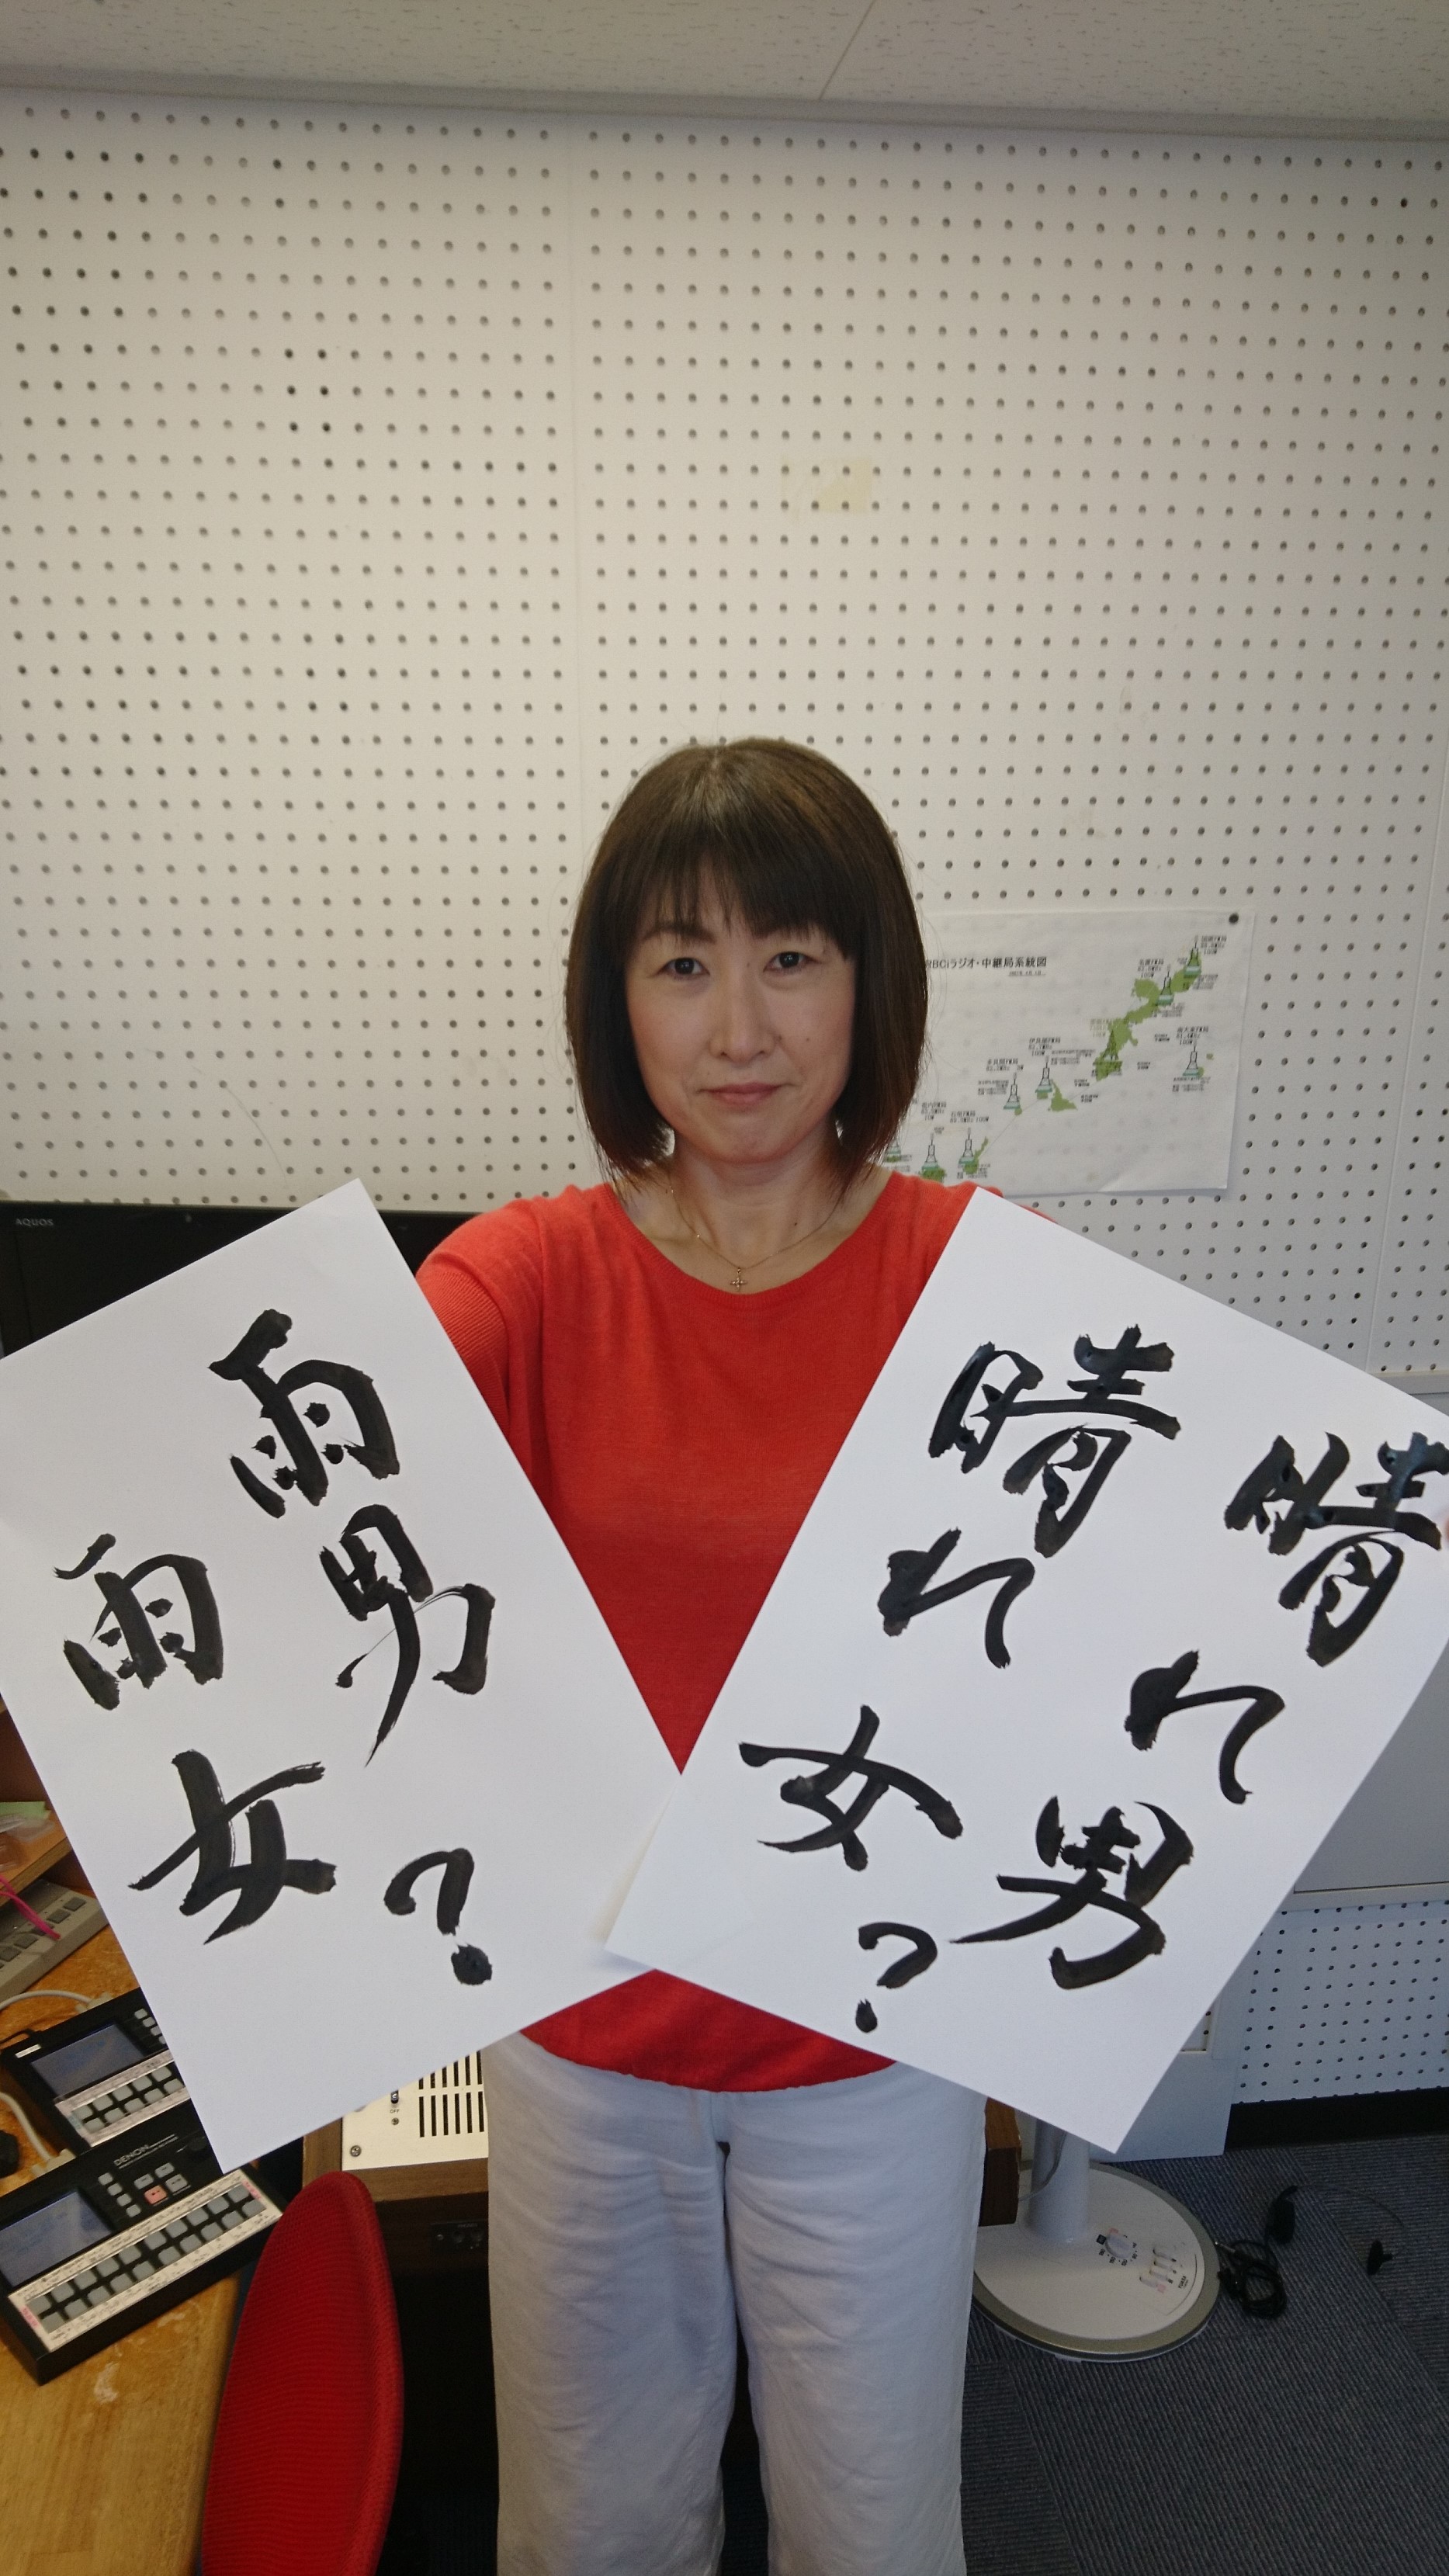 AQUOS
BCiラジオ・中継局系統図
雨男
雨女?
晴れ男
晴れ女?
DENON